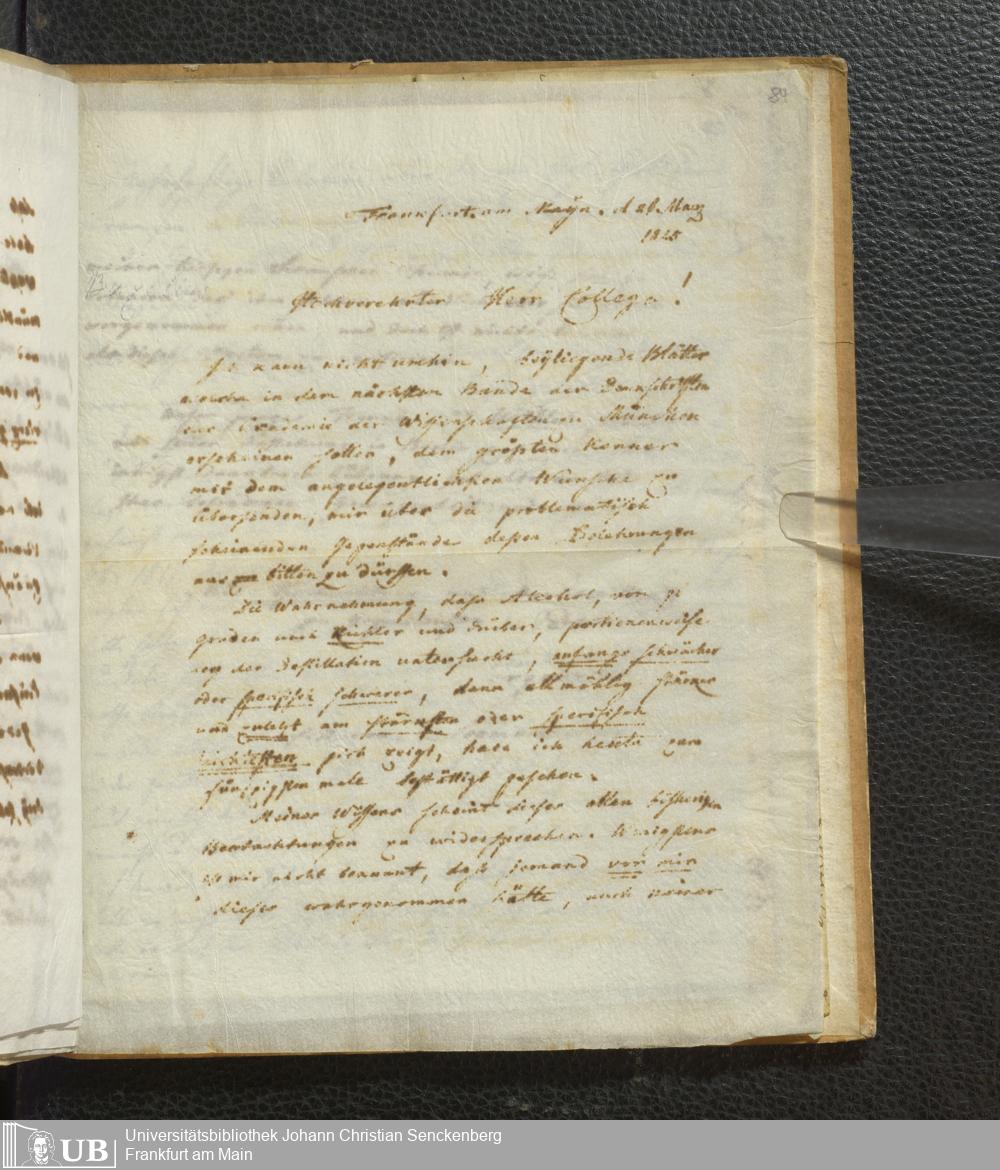 84
Frankfurt am Mayn. d 28. März
1825
Hochverehrter Herr College!
Ich kann nicht umhin, beÿliegende Blätter
welche in dem nächsten Bande der Denkschriften
der Academie der Wissenschaften in München
erscheinen sollen, dem größten Kenner
mit dem angelegentlichsten Wunsche zu
übersenden, mir über die problematisch
scheinenden Gegenstände dessen Belehrungen
aus bitten zu dürffen.
Die Wahrnehmung, dass Alcohol, von 91
graden nach Richter und drüber, portionenweise
bey der Destillation untersucht, anfangs schwächer
oder specifisch schwerer, dann allmählig stärker
und zuletzt am stärksten oder specifisch
leichtesten sich zeigt, habe ich heute zum
fünfzigsten male bestättigt gesehen.
Meines Wissens scheint dieses allen bisherigen
Beobachtungen zu widersprechen. Wenigstens
ist mir nicht bekannt, daß jemand vor mir
dieses wahrgenommen hätte, auch keiner
UB
Universitätsbibliothek Johann Christian Senckenberg
Frankfurt am Main